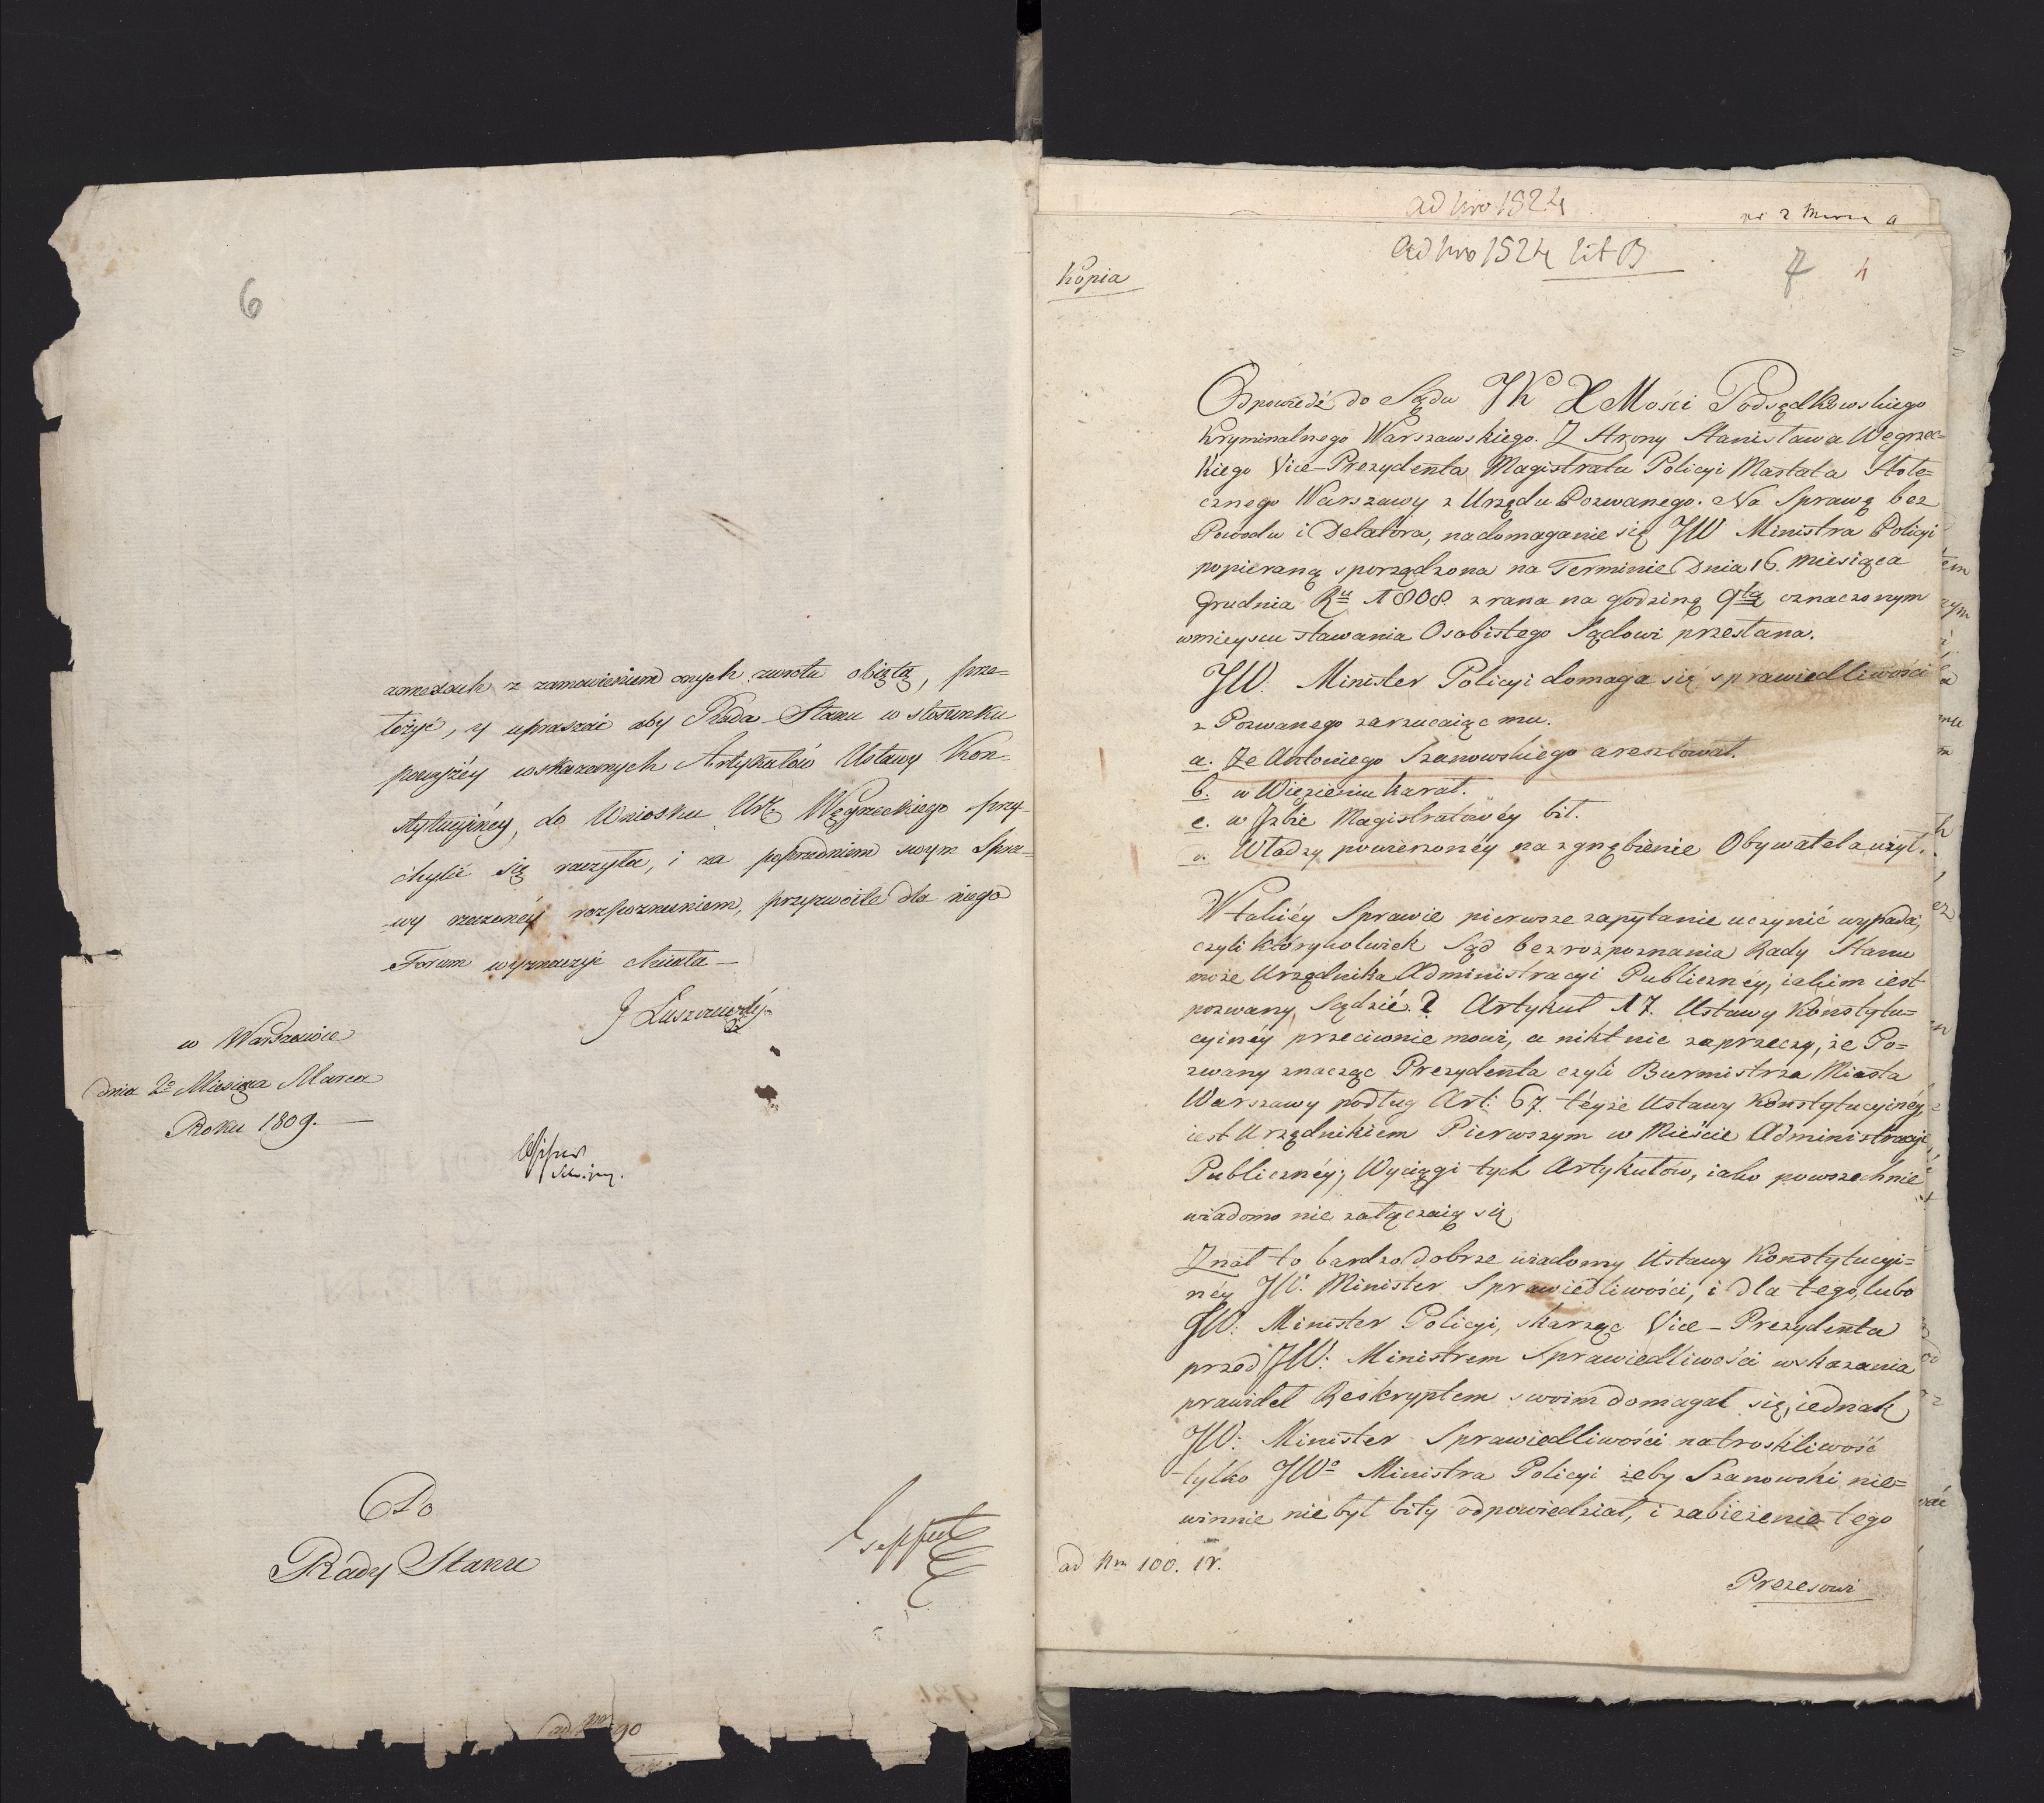 6
annexach z zamowieniem onych zwrotu obiętą, prze-
łożyć, y upraszać aby Rada Stanu w stosunku
powyżéy wskazanych Artykułów Ustawy Kon-
stytucyinéy, do Wniosku Ur. Węgrzeckiego przy-
chylić się raczyła, i za poprzedniem swym Spra-
wy rzeczonéy rozpoznaniem, przyzwoite dla niego
Forum wyznaczyć chciała —
J Łuszczewski
w Warszawie
dnia 2º Miesiąca Marca
Roku 1809. —
Do
Rady Stanu
ad Nrum 90
ad Nro 1524
ad Nro 1524 lit B
7 4
Kopia
Odpowiedź do Sądu JK X Mości Podsędkowskiego
Kryminalnego Warszawskiego. Z Strony Stanisława Węgrzec=
kiego Vice-Prezydenta Magistratu Policyi Miasta Stołe=
cznego Warszawy z Urzędu Pozwanego. Na Sprawę bez
Powodu i Delatora, na domaganie się JW Ministra Policyi
popieraną sporządzona na Terminie Dnia 16. Miesiąca
Grudnia Ru 1808. z rana na godzinę 9tą oznaczonym
w mieyscu stawania Osobistego Sądowi przesłana.
JW. Minister Policyi domaga się sprawiedliwości
z Pozwanego zarzucaiąc mu.
a. Że Antoniego Szanowskiego aresztował.
b. w Więzieniu karał.
c. w Izbie Magistratowéy bił.
d. Władzy powierzonéy na zgnębienie Obywatela użył.
W takiéy Sprawie pierwsze zapytanie uczynić wypada,
czyli którykolwiek Sąd bez rozpoznania Rady Stanu
może Urzędnika Administracyi Publicznéy, iakim iest
pozwany Sądzić? Artykuł 17. Ustawy Konstytu=
cyinéy przeciwnie mowi, a nikt nie zaprzeczy, że Po=
zwany znacząc Prezydenta czyli Burmistrza Miasta
Warszawy podług Art: 67. téyże Ustawy Konstytucyinéy,
iest Urzędnikiem Pierwszym w Mieście Administracyi
Publicznéy; Wyciągi tych Artykułów, iako powszechnie
wiadomo nie załączaią się
Znał to bardzo dobrze wiadomy Ustawy Konstytucyi=
néy JW. Minister Sprawiedliwości, i dla tego, lubo
JW: Minister Policyi, skarżąc Vice-Prezydenta
przed JW: Ministrem Sprawiedliwości wskazania
prawideł Reskryptem swoim domagał się, iednak
JW: Minister Sprawiedliwości na troskliwość
tylko JWº Ministra Policyi żeby Szanowski nie=
winnie nie był bity odpowiedział, i zabieżenie tego
ad Nm 100. 1r.
Prezesowi